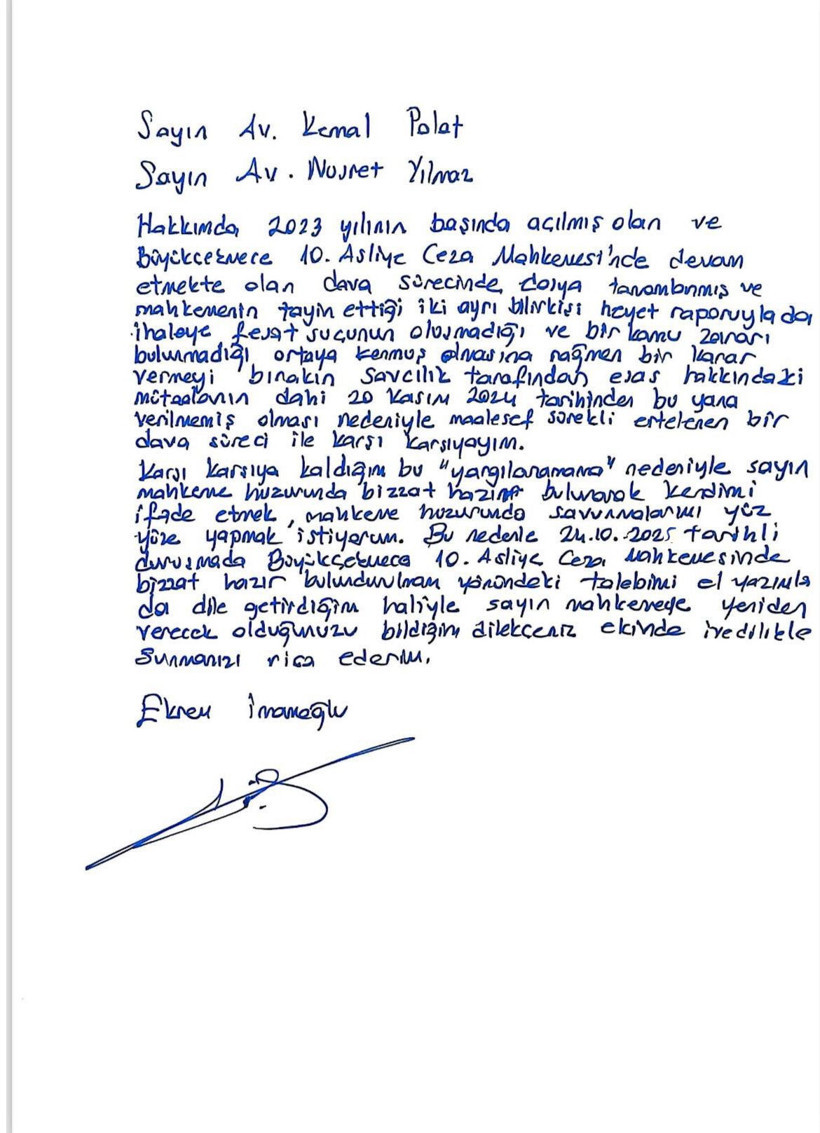 Sayın Av. Kemal Polat
Sayın Av. Nusret Yılmaz
Hakkımda, 2023 yılının başında açılmış olan ve
Büyükçekmece 10. Asliye Ceza Mahkemesi'nde devam
etmekte olan dava sürecinde, dosya tamamlanmış ve
mahkemenin tayin ettiği iki ayrı bilirkişi heyet raporuyla da,
ihaleye fesat suçunun oluşmadığı ve bir kamu zararı
bulunmadığı ortaya konmuş olmasına rağmen bir karar
vermeyi bırakın savcılık tarafından esas hakkındaki
mütaalanın dahi 20 Kasım 2024 tarihinden bu yana
verilmemiş olması nedeniyle maalesef sürekli ertelenen bir
dava süreci ile karşı karşıyayım.
Karşı karşıya kaldığım bu "yargılanamama" nedeniyle sayın
mahkeme huzurunda bizzat hazır bulunarak kendimi
ifade etmek, mahkeme huzurunda savunmalarımı yüz
yüze yapmak istiyorum. Bu nedenle 24.10.2025 tarihli
duruşmada Büyükçekmece 10. Asliye Ceza Mahkemesinde
bizzat hazır bulundurulmam yönündeki talebimi el yazımla
da dile getirdiğim haliyle sayın mahkemeye yeniden
verecek olduğunuzu bildiğim dilekçeniz ekinde ivedilikle
sunmanızı rica ederim.
Ekrem İmamoğlu